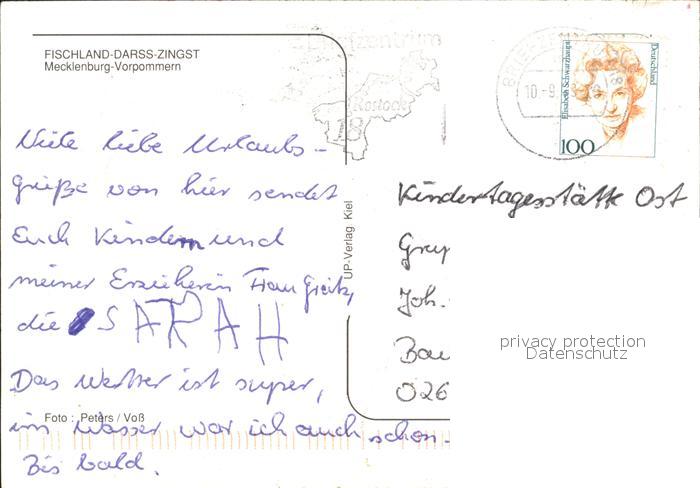 FISCHLAND-DARSS-ZINGST
Mecklenburg-Vorpommern
Viele liebe Urlaubs-
grüße von hier sendet
Euch Kindern und
meiner Erzieherin Frau
die SARAH
Das Wetter ist super,
im Wasser war ich auch schon.
Bis bald.
Foto : Peters / Voß
UP-Verlag Kiel
Briefzentrum
Rostock
18
10.-9.
Elisabeth Schwarzhaupt
Deutschland
100
Kindertagesstätte Ost
Joh.
Bau
026
privacy protection
Datenschutz